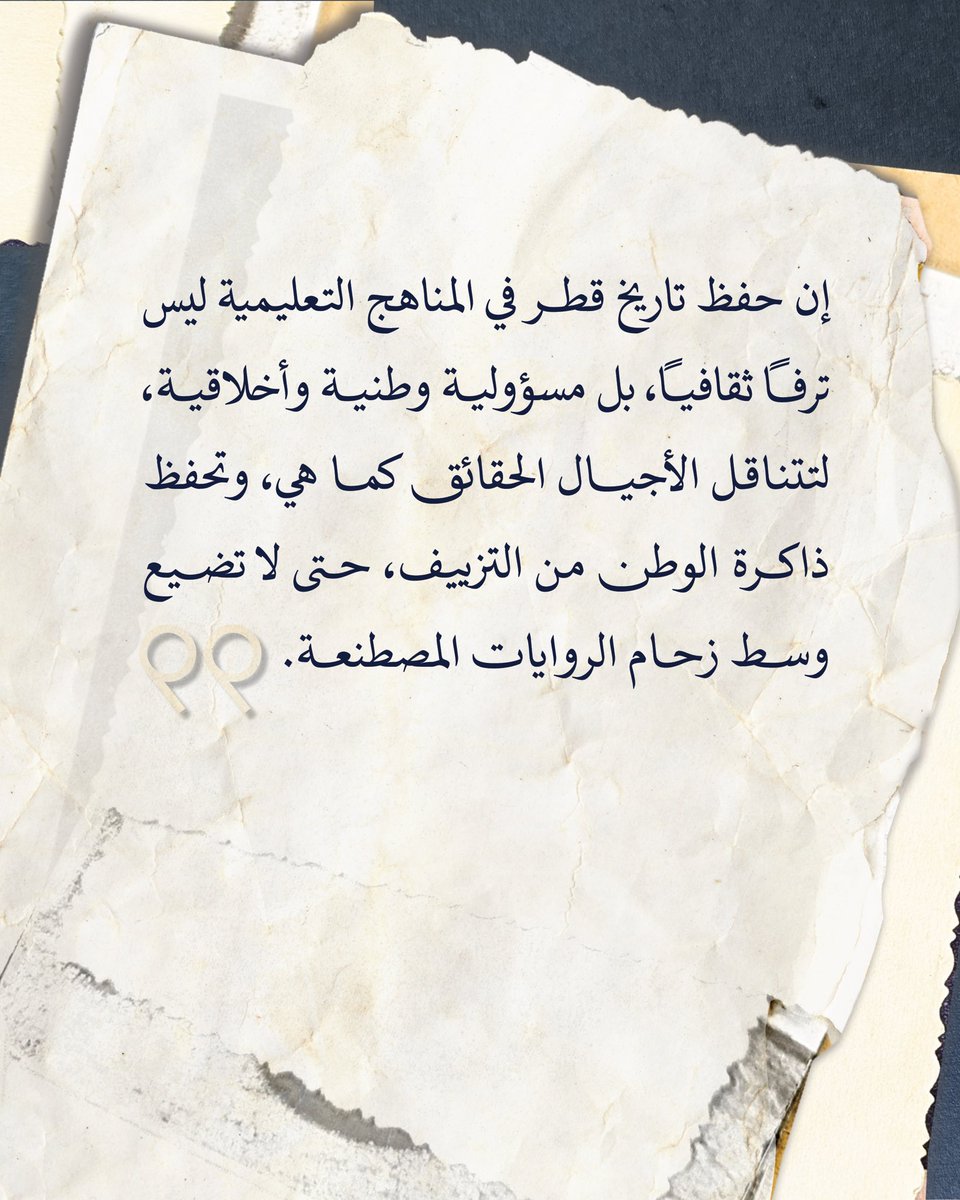 إن حفظ تاريخ قطر في المناهج التعليمية ليس
ترفًا ثقافيًا، بل مسؤولية وطنية وأخلاقية،
لتتناقل الأجيال الحقائق كما هي، وتحفظ
ذاكرة الوطن من التزييف، حتى لا تضيع
وسط زحام الروايات المصطنعة.